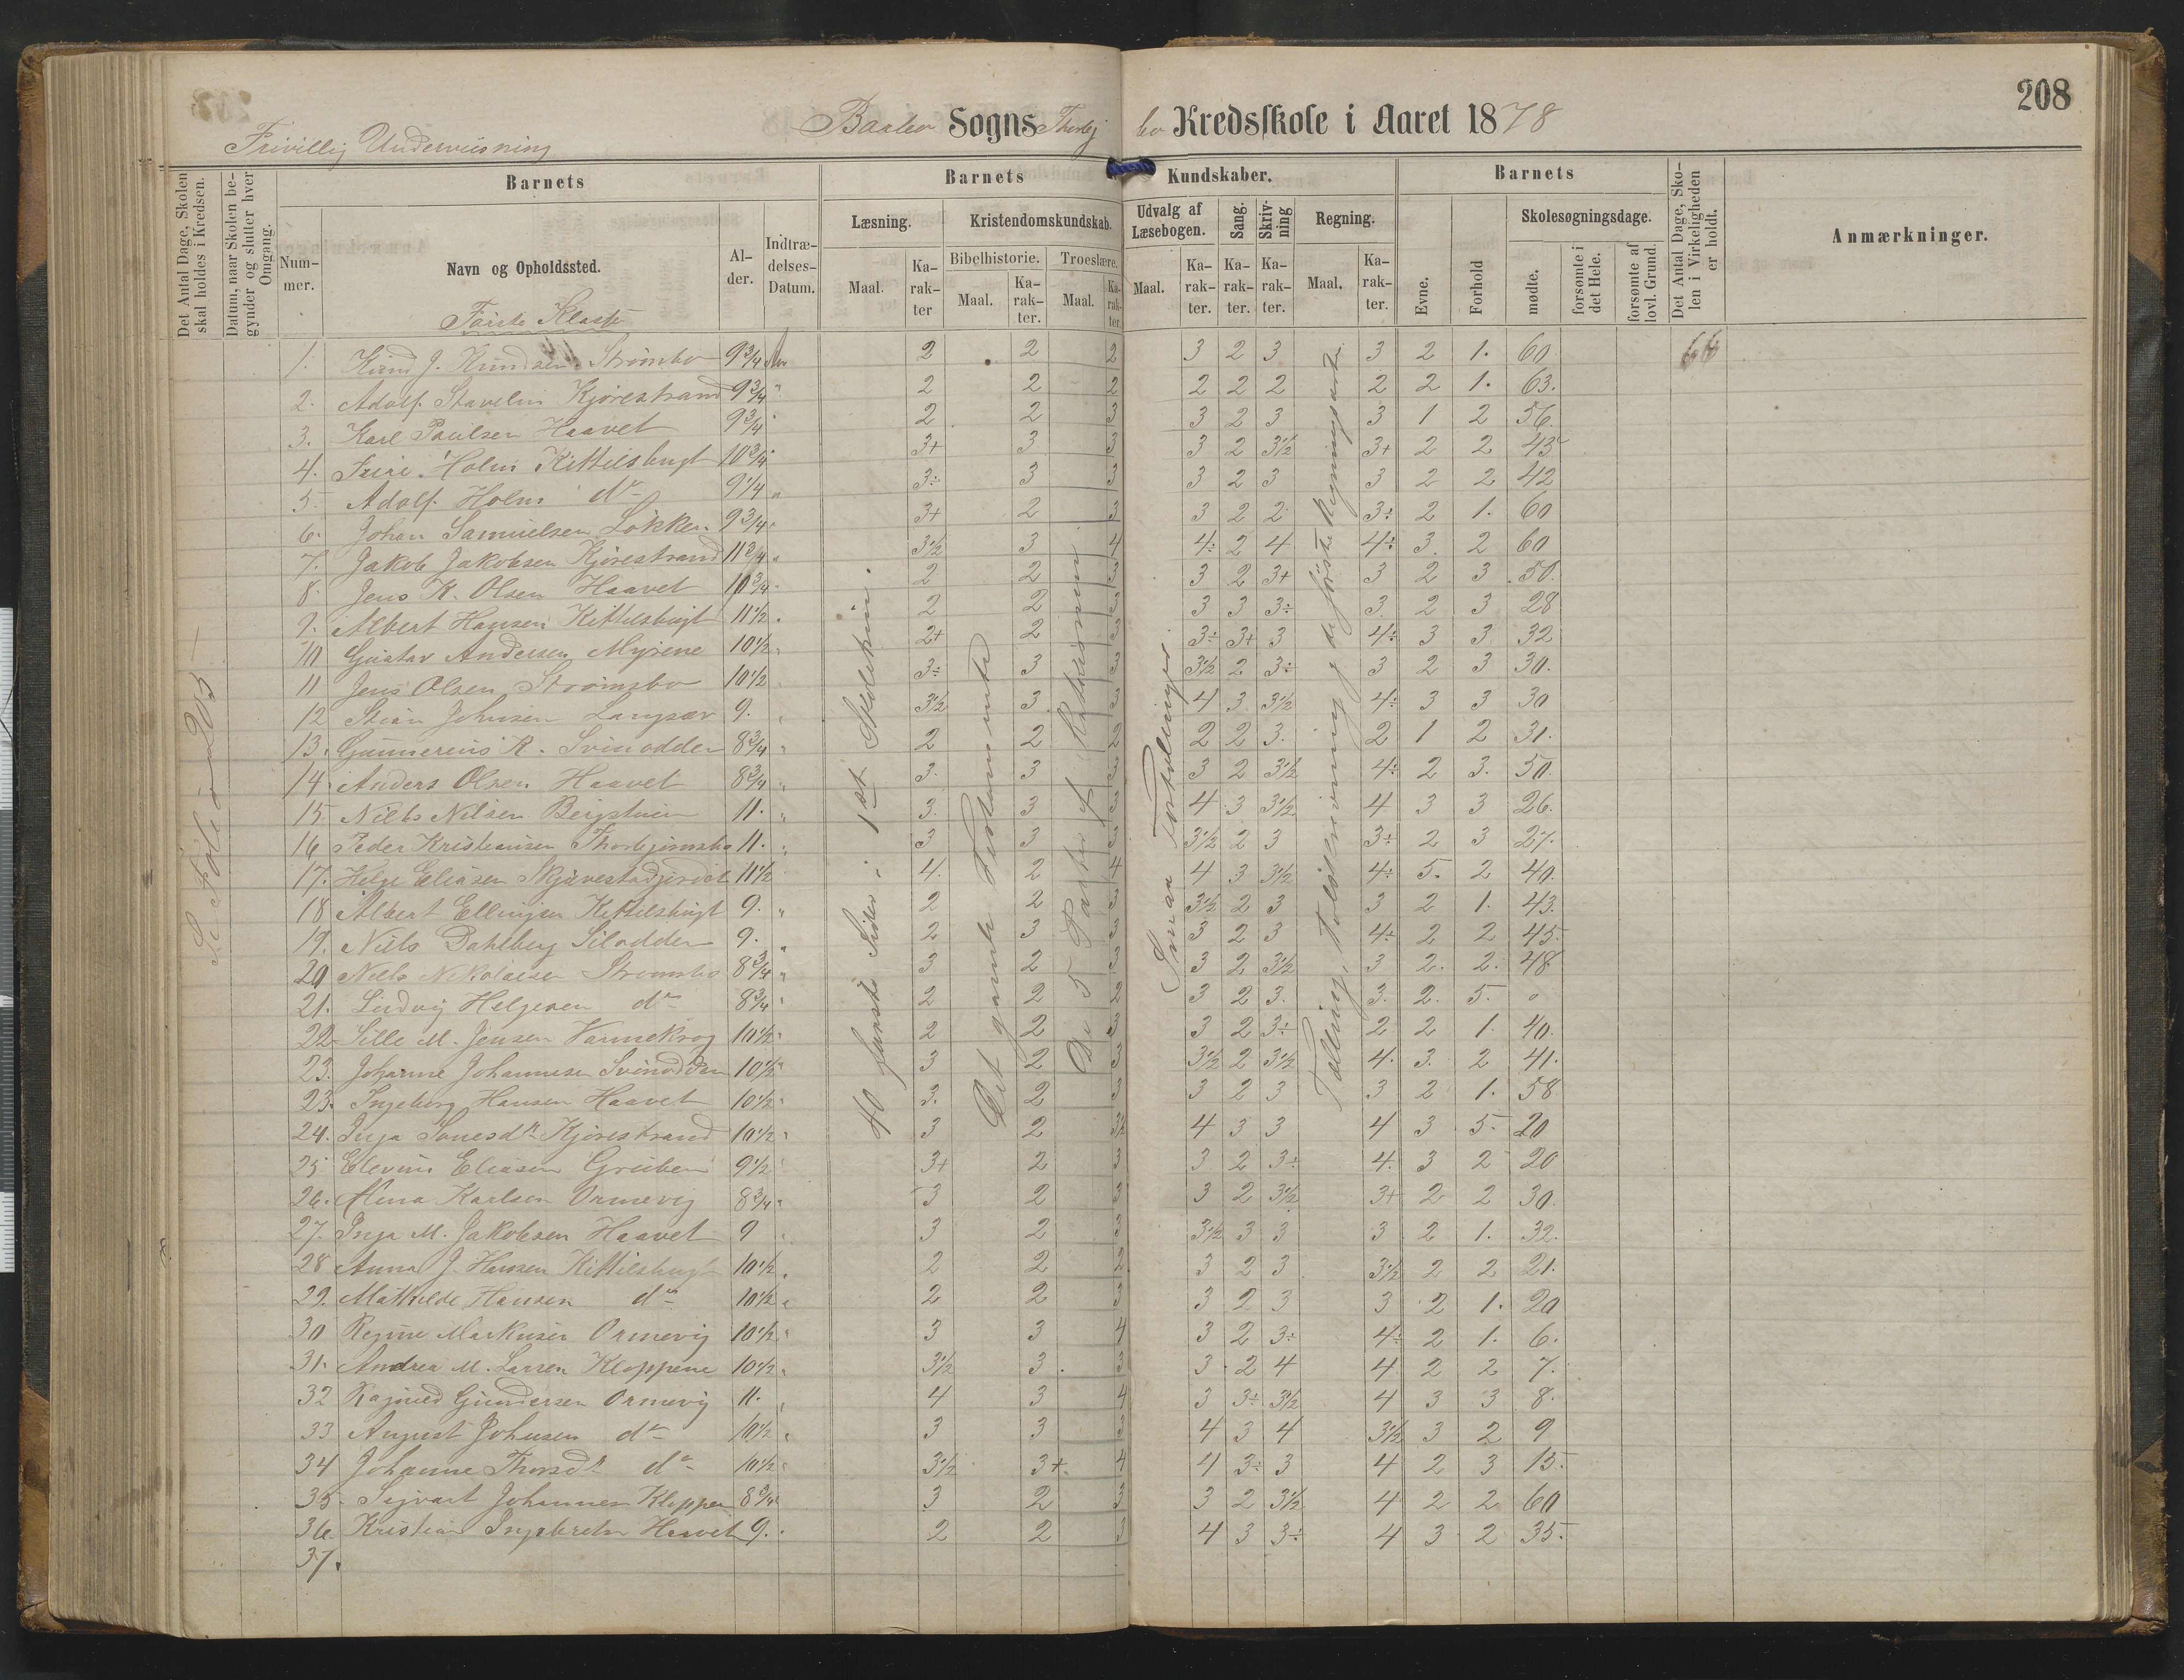 208
Baaselands Sogns Thorbj bo Kredsskole i Aaret 1878
Frivillig Underviisning
Det Antal Dage, Skolen skal holdes i Kredsen.
Datum, naar Skolen begynder og slutter hver Omgang.
Barnets
Nummer.
Navn og Opholdssted.
Alder.
Indtrædelses-Datum.
Barnets Kundskaber.
Læsning.
Maal.
Karakter
Kristendomskundskab.
Bibelhistorie.
Maal.
Karakter.
Troeslære.
Maal.
Karakter.
Udvalg af Læsebogen.
Maal.
Karakter.
Sang.
Karakter.
Skrivning
Karakter.
Regning.
Maal.
Karakter.
Barnets
Evne.
Forhold
Skolesøgningsdage.
mødte.
forsømte i det Hele.
forsømte af lovl. Grund.
Det Antal Dage, Skolen i Virkeligheden er holdt.
Anmærkninger.
Første Klasse
Se Folio 205
40 første Sider i 1st Skoletrin.
Det gamle Testamente
De 5 Parter af Katekismen
Smaa Fortællinger
1. Knud J. Knudsen Strømsbo 9 3/4 2 2 2 3 2 3 3 2 1. 60
2. Adolf Stavelin Kjørestrand 9 3/4 " 2 2 2 2 2 2 2 2 1. 63.
3. Karl Paulsen Haavet 9 3/4 " 2 2 3 3 2 3 3 1 2 56.
4. Holm Kittelsbugt 10 3/4 " 3+ 3 3 3 2 3 1/2 3+ 2 2 43
5. Adolf Holm do 9 1/4 " 3÷ 3 3 3 2 3 3 2 2 42
6. Johan Samuelsen Løkken 9 3/4 " 3+ 2 3 3 2 2 3÷ 2 1. 60
7. Jakob Jakobsen Kjørestrand 11 3/4 " 3 1/2 3 4 4÷ 2 4 4÷ 3. 2 60
8. Jens K. Olsen Haavet 10 3/4 " 2 2 3 3 2 3+ 3 2 3 50.
9. Albert Hansen Kittelsbugt 11 1/2 " 2 2 3 3 3 3÷ 3. 2 3 28
10 Gustav Andersen Myrene 10 1/2 " 2+ 2 3 3÷ 3+ 3 4÷ 3 3 32
11 Jens Olsen Strømsbo 10 1/2 3÷ 3 3 3 1/2 2 3÷ 3 2 3 30.
12 Stian Johnsen Langsæv 9. " 3 1/2 3 3 4 3 3 1/2 4÷ 3 3 30
13. Gunnerius R. Svinodden 8 3/4 " 2 2 2 2 2 3. 2 1 2 31.
14. Anders Olsen Haavet 8 3/4 " 3. 3 3 3 2 3 1/2 4÷ 2 3. 50.
15. Niels Nilsen Bergstuen 11. " 3. 3 3 4 3 3 1/2 4 3 3 26.
16 Peder Kristiansen Thorbjørnsbo 11. " 3 3 3 3 1/2 2 3 3÷ 2 3 27.
17. Helge Eliasen 11 1/2 4. 2 4 4 3 3 1/2 4÷ 5. 2 40.
18 Albert Ellingsen Kittelsbugt 9. " 2 2 3 3 1/2 2 3 3 2 1. 43.
19. Niels Dahlberg Silodden 9. " 2 3 3 3 2 3 4÷ 2 2 45.
20 Niels Nikolaisen Strømsbo 8 3/4 " 3 2 3 3 2 3 1/2 3 2. 2. 48
21. Ludvig Helgesen do 8 3/4 " 2 2 2 3 2 3. 3. 2. 5. "
22 Sille M. Jensen Varmekrog 10 1/2 " 2 2 3 3 2 3÷ 2 2 1. 40.
23. Johanne Johannesen Svinodden 10 1/2 " 3 2 3 3 1/2 2 3 1/2 4. 3. 2 41.
23. Ingeborg Hansen Haavet 10 1/2 " 3. 2 3 3 2 3 3 2 1. 58
24. Inga Kjørestrand 10 1/2 " 3 2 3 1/2 4 3 3 4 3 5. 20
25. Elevine Eliasen Gruben 9 1/2 3+ 2 3 3 2 3÷ 4. 3 2 20
26. Alma Karlsen Ormevig 8 3/4 " 3 2 3 3 2 3 1/2 3+ 2 2 30.
27. Inga M. Jakobsen Haavet 9 " 3 2 3 3 1/2 3 3 3 2 1. 32.
28 Anna J. Hansen Kittelsbugt 10 1/2 " 2 2 2 3 2 3 3 1/2 2 2 21.
29. Mathilde Hansen do 10 1/2 " 2 2 3 3 2 3 3 2 1. 20
30 Regine Markusen Ormevig 10 1/2 " 3 3 4 3 2 3÷ 4÷ 2 1. 6.
31. Andrea M. Larsen Kloppene 10 1/2 " 3 1/2 3. 3 3 2 4 4 2 2 7.
32 Ragnild Gundersen Ormevig 11. " 4 3 4 3 3÷ 3 1/2 4 3 3 8.
33 August Johnsen do 10 1/2 " 3 3 3 4 3 4 3 1/2 3 2 9
34 Johanne do 10 1/2 " 3 1/2 3+ 4 4 3÷ 3 4 2 3 15.
35. Sigvart Johannes Kloppen 8 3/4 " 3 2 3 3 2 3 1/2 4 2 2 60
36 Kristian Haavet 9. 2 2 3 4 3 3÷ 4 3 2 35.
37.